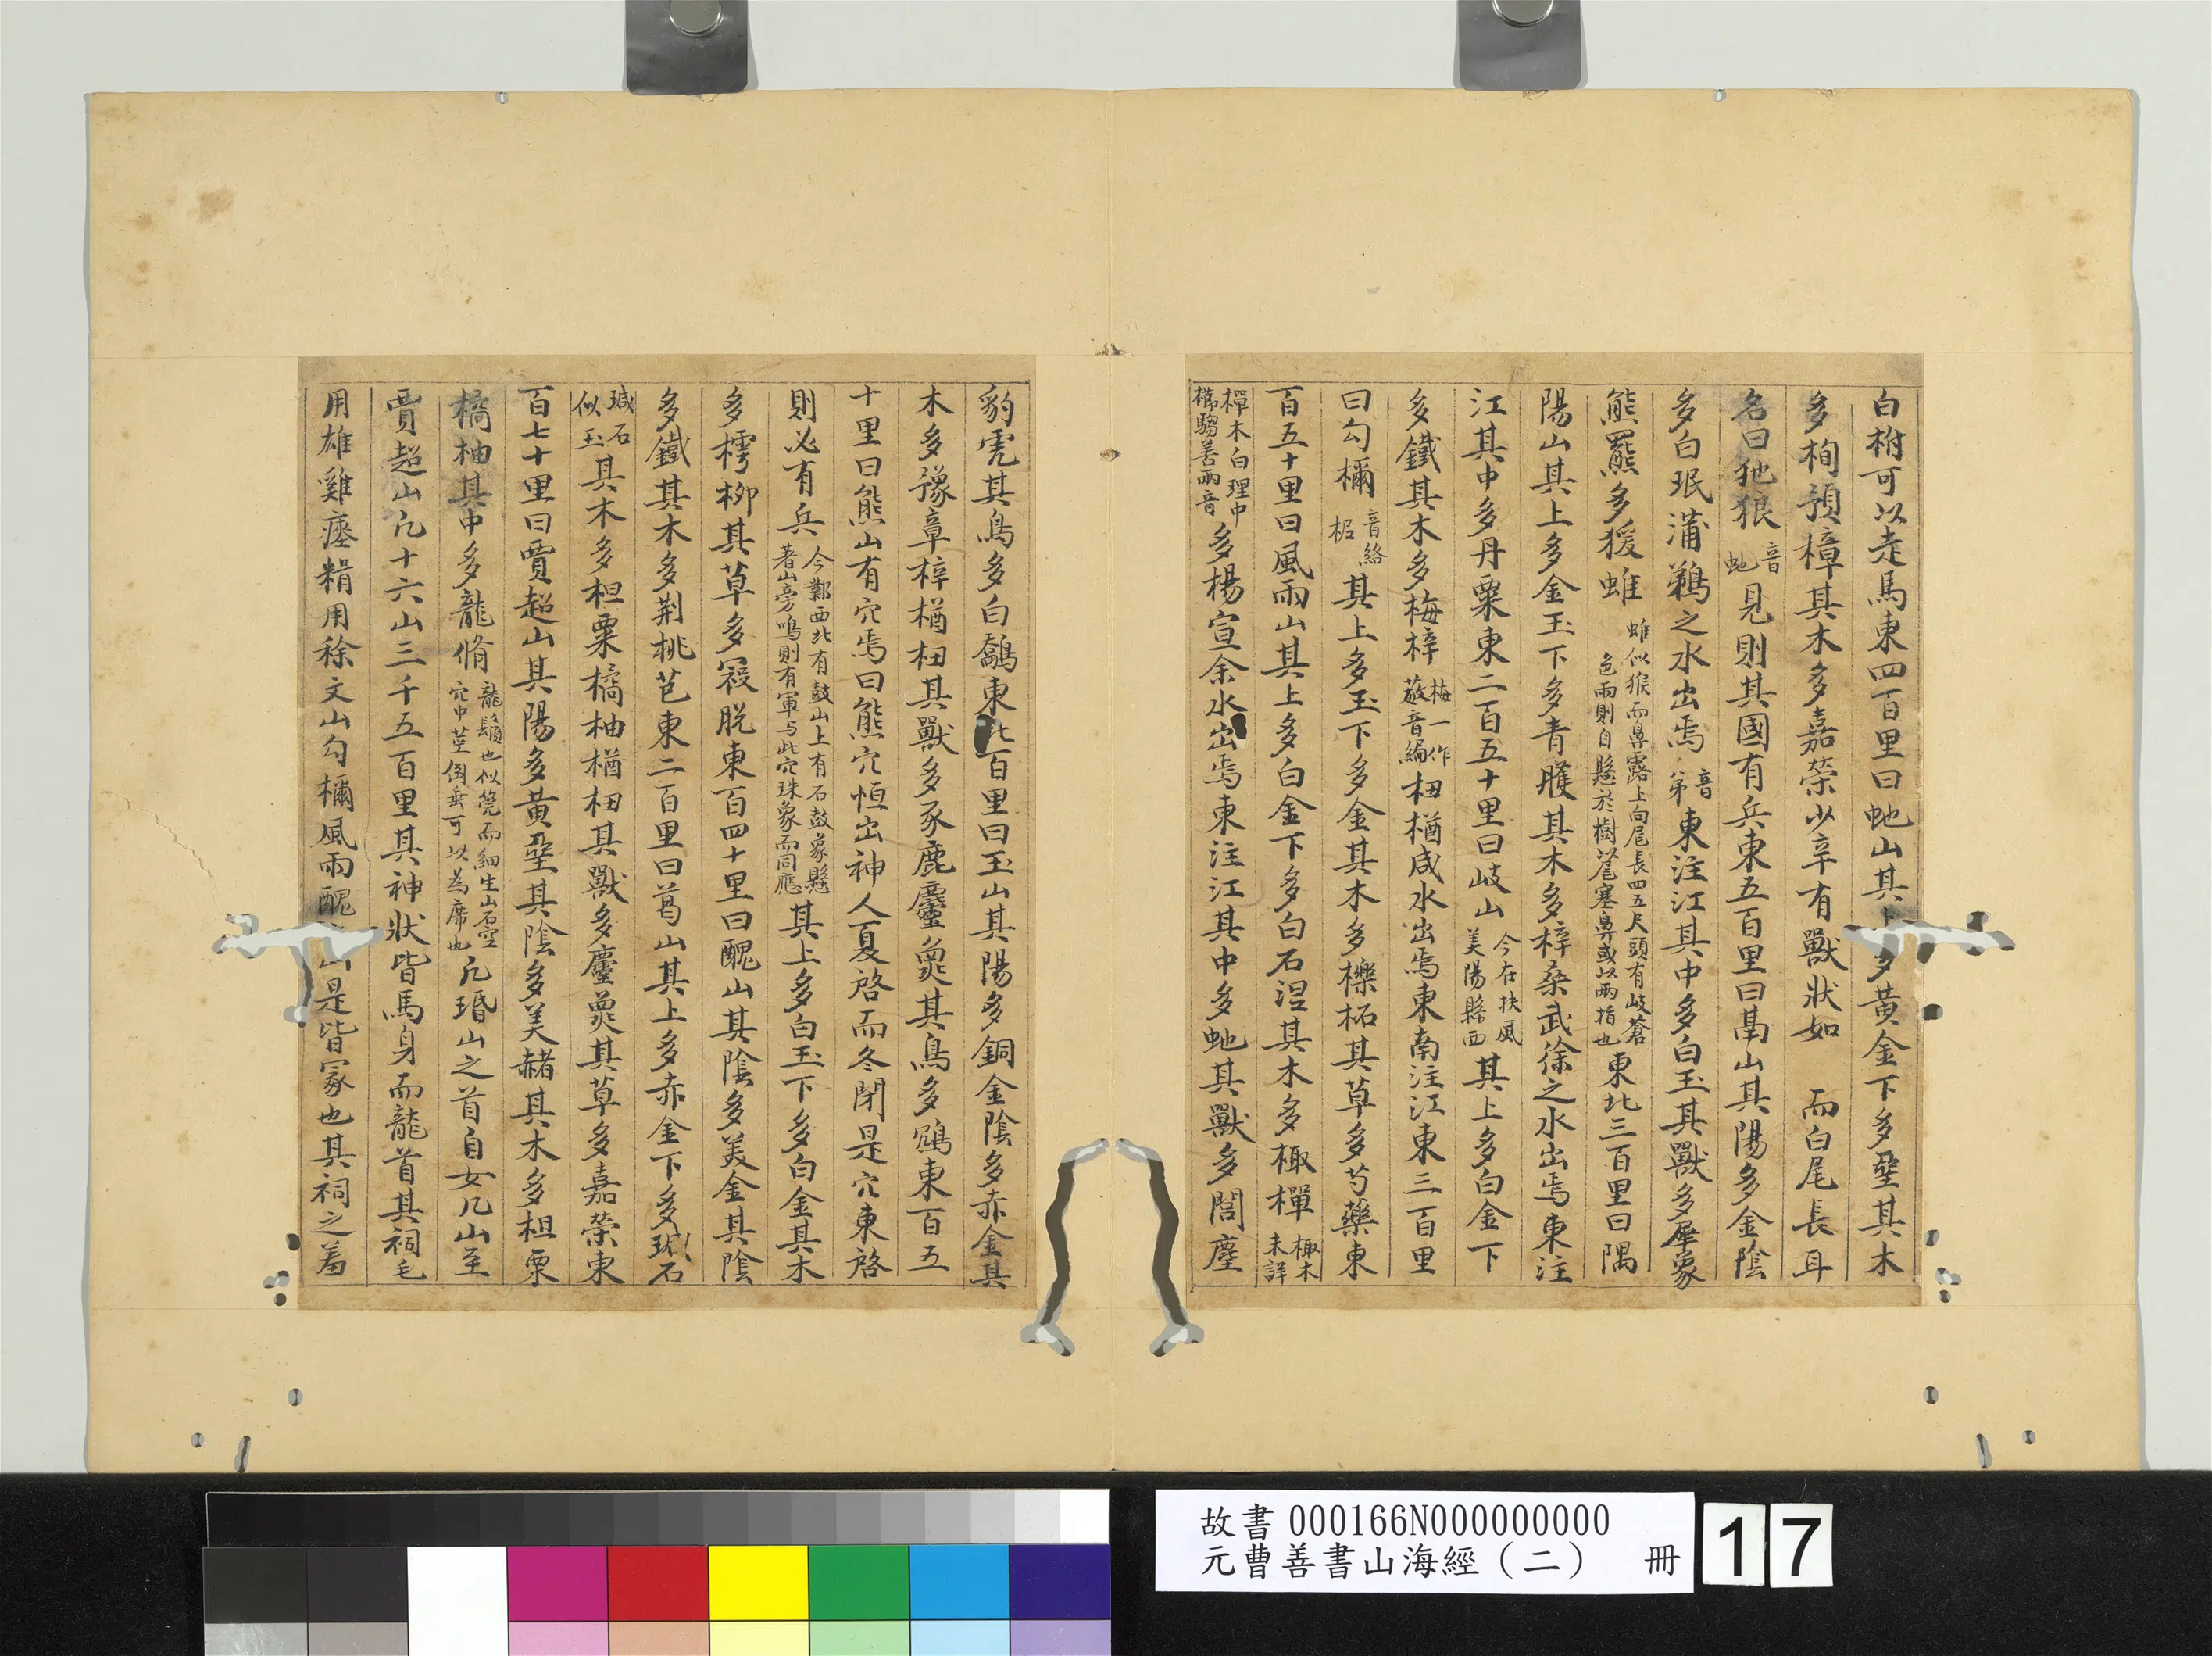 白柎可以走馬東四百里曰虵山其上多黃金下多堊其木
多栒預樟其木多嘉榮少辛有獸狀如 而白尾長耳
名曰狏狼音虵見則其國有兵東五百里曰鬲山其陽多金陰
多白珉蒲鵜之水出焉音弟東注江其中多白玉其獸多犀象
熊羆多猨蜼蜼似猴而鼻露上向尾長四五尺頭有岐蒼色雨則自懸於樹以尾塞鼻或以兩指也東北三百里曰隅
陽山其上多金玉下多青雘其木多梓桑武徐之水出焉東注
江其中多丹粟東二百五十里曰岐山今在扶風美陽縣西其上多白金下
多鐵其木多梅梓梅一作藙音編杻楢咸水出焉東南注江東三百里
曰勾檷音絡柅其上多玉下多金其木多櫟柘其草多芍藥東
百五十里曰風雨山其上多白金下多白石涅其木多棷樿棷木未詳
樿木白理中櫛騶善兩音多楊宣余水出焉東注江其中多虵其獸多閭麈
豹虎其鳥多白鷮東北百里曰玉山其陽多銅金陰多赤金其
木多豫章梓楢杻其獸多豕鹿麢㚟其鳥多鴆東百五
十里曰熊山有穴焉曰熊穴恒出神人夏啓而冬閉是穴東啓
則必有兵今鄴西北有鼓山上有石鼓象懸著山旁鳴則有軍与此穴殊象而同應其上多白玉下多白金其木
多樗柳其草多寇脫東百四十里曰醜山其陰多美金其陰
多鐵其木多荆桃芑東二百里曰葛山其上多赤金下多瑊石
瑊石似玉其木多柤栗橘柚楢杻其獸多麢㚟其草多嘉榮東
百七十里曰賈超山其陽多黃堊其陰多美赭其木多柤栗
橘柚其中多龍脩龍鬚也似莞而細生山石空穴中莖倒垂可以為席也凡㻉山之首自女几山至
賈超山凡十六山三千五百里其神狀皆馬身而龍首其祠毛
用雄雞瘞糈用稌文山勾檷風雨醜山是皆冢也其祠之羞
故書 000166N000000000
元曹善書山海經（二） 冊 17